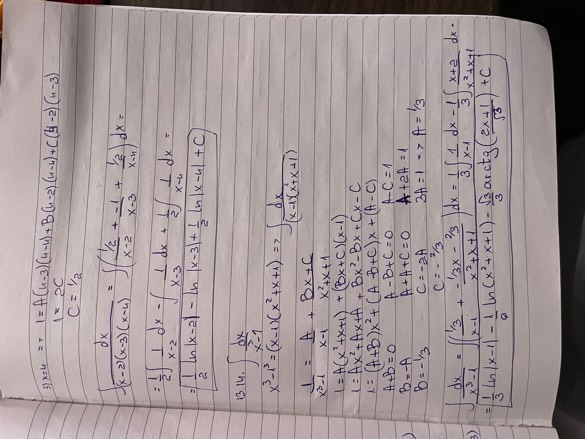 3) x=4 => 1=A(4-3)(4-4)+B(4-2)(4-4)+C(4-2)(4-3)
1 = 2C
C = 1/2
∫ dx/((x-2)(x-3)(x-4)) = ∫ ( (1/2)/(x-2) + (-1)/(x-3) + (1/2)/(x-4) ) dx =
= 1/2 ∫ 1/(x-2) dx - ∫ 1/(x-3) dx + 1/2 ∫ 1/(x-4) dx =
= 1/2 ln|x-2| - ln|x-3| + 1/2 ln|x-4| + C
13.14. ∫ dx/(x³-1)
x³-1³=(x-1)(x²+x+1) => ∫ dx/((x-1)(x²+x+1))
1/(x³-1) = A/(x-1) + (Bx+C)/(x²+x+1)
1=A(x²+x+1) + (Bx+C)(x-1)
1=Ax²+Ax+A + Bx²-Bx+Cx-C
1=(A+B)x²+(A-B+C)x+(A-C)
A+B=0 A-B+C=0 A-C=1
B=-A A+A+C=0 A+2A=1
B=-1/3 C=-2A 3A=1 => A=1/3
C=-2/3
∫ dx/(x³-1) = ∫ ( (1/3)/(x-1) + (-1/3x-2/3)/(x²+x+1) ) dx = 1/3 ∫ 1/(x-1) dx - 1/3 ∫ (x+2)/(x²+x+1) dx =
= 1/3 ln|x-1| - 1/6 ln(x²+x+1) - √3/3 arctg((2x+1)/√3) + C